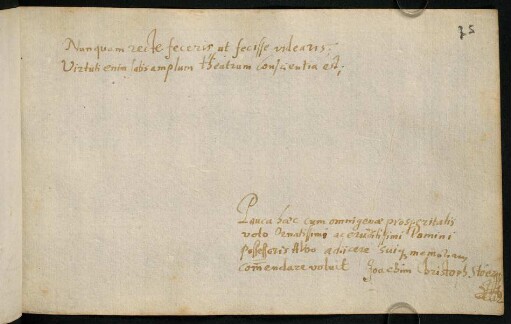 75
Nunquam recte feceris, ut fecisse videaris;
Virtuti enim satis amplum theatrum conscientia est;
Pauca hæc cum omnigenæ prosperitatis
voto Ornatissimi ac eruditissimi Domini
possessoris Albo adijcere suiq; memoriam
com̃endare voluit Joachim Christoph.